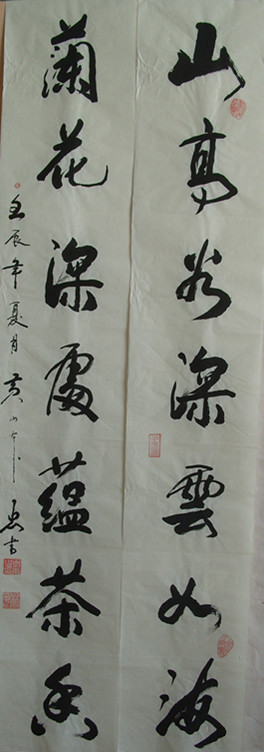 山高谷深雲如海
蘭花深處蘊茶香
壬辰年夏月黄山